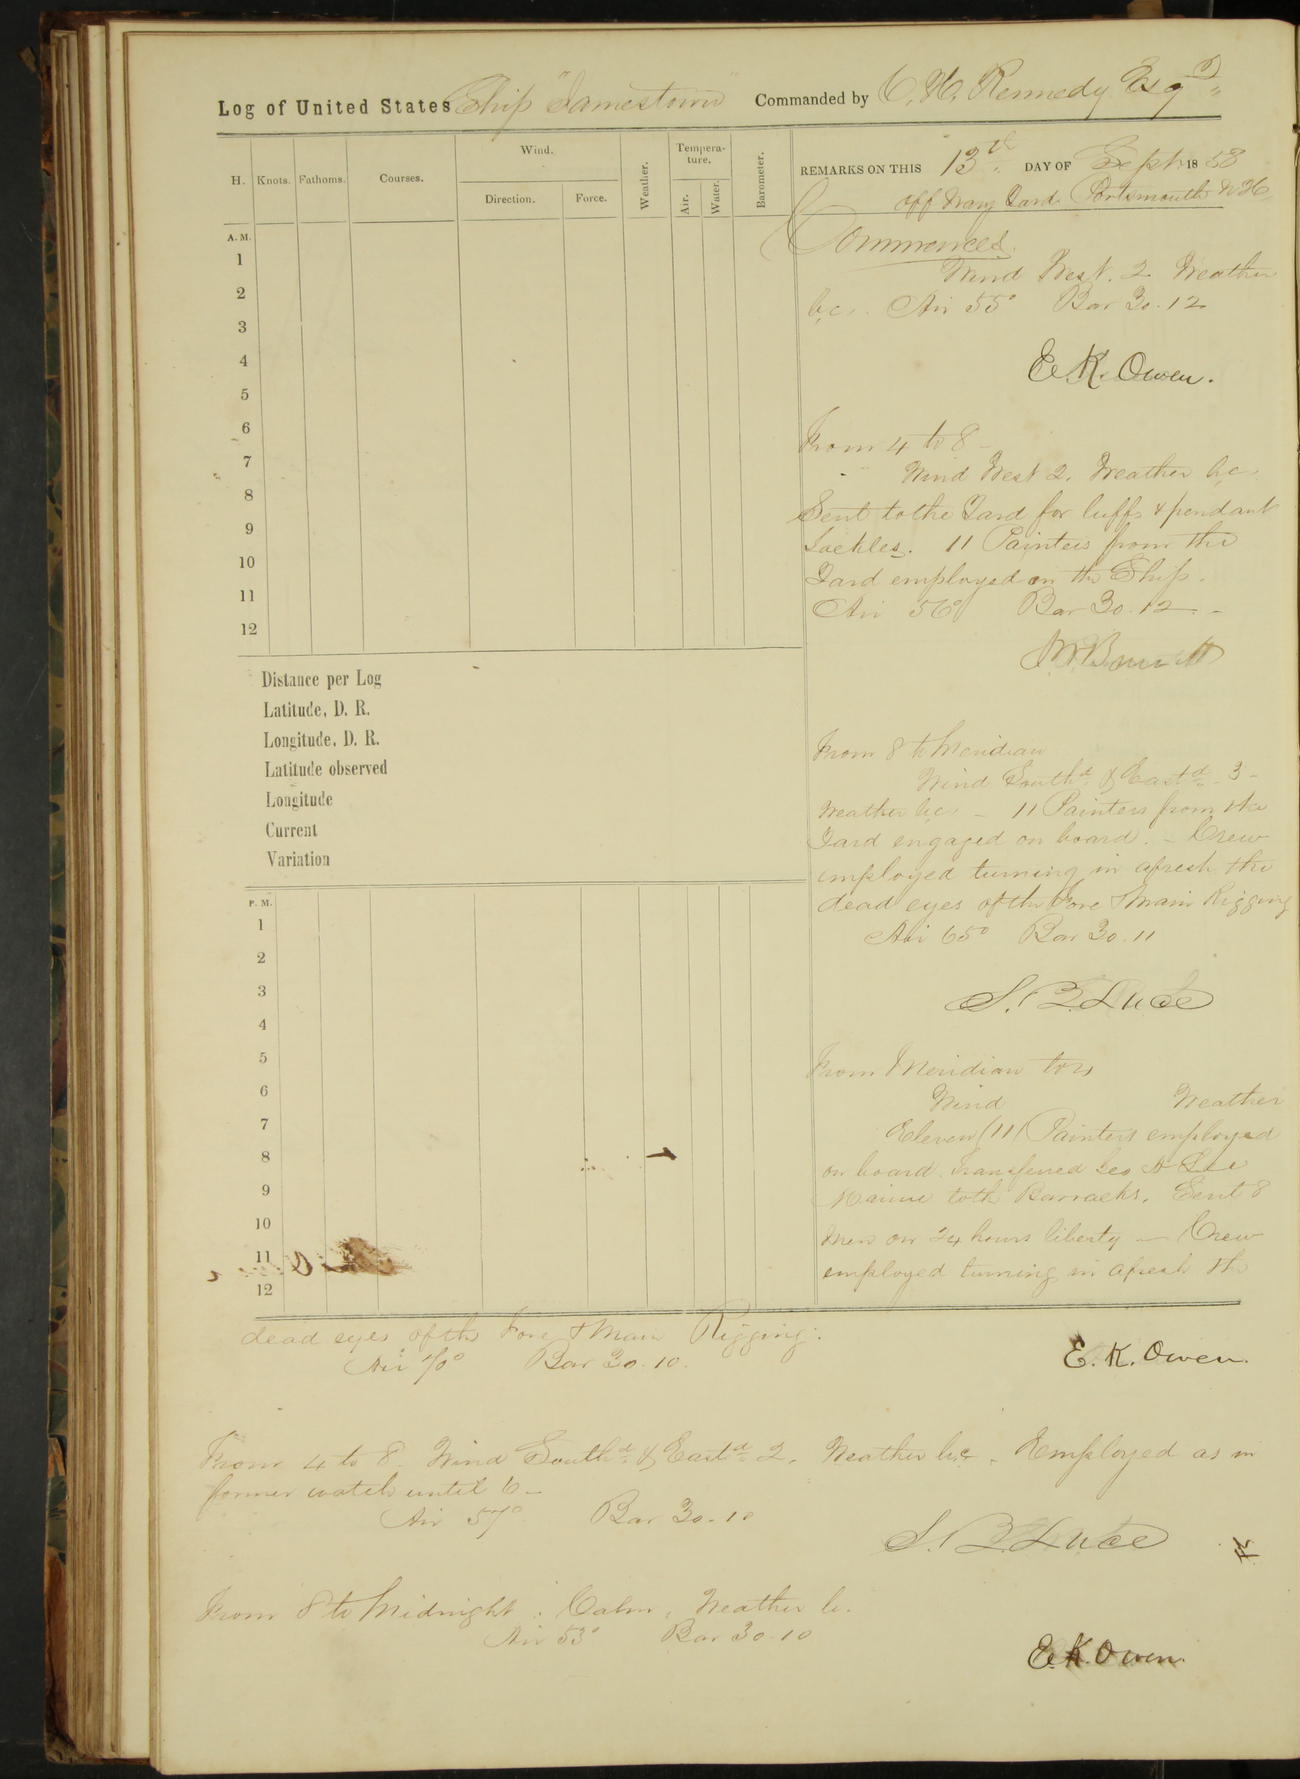 Log of United States Ship "Jamestown" Commanded by C. H. Kennedy Esqr
H. Knots. Fathoms. Courses. Wind. Direction. Force. Weather. Tempera-ture. Air. Water. Barometer.
REMARKS ON THIS 13th DAY OF Sept. 1858
off Navy Yard Portsmouth N H
A. M.
1
2
3
4
5
6
7
8
9
10
11
12
Commences.
Wind West. 2. Weather
b.c. Air 55° Bar 30.12
E. K. Owen.
From 4 to 8 -
Wind West 2. Weather b.c.
Sent to the Yard for luffs & pendant
tackles. 11 Painters from the
Yard employed on the Ship.
Air 56° Bar 30.12 -
Distance per Log
Latitude, D. R.
Longitude, D. R.
Latitude observed
Longitude
Current
Variation
From 8 to Meridian
Wind Southd & Eastd - 3 -
Weather b.c. - 11 Painters from the
Yard engaged on board. - Crew
employed turning in afresh the
dead eyes of the Fore & Main Rigging
Air 65° Bar 30.11
S. B. Luce
P. M.
1
2
3
4
5
6
7
8
9
10
11
12
From Meridian to 4
Wind Weather
Eleven (11) Painters employed
on board. Transferred Geo A Lee
Marine to the Barracks. Sent 8
men on 24 hours liberty - Crew
employed turning in afresh the
dead eyes of the Fore & Main Rigging.
Air 70° Bar 30.10.
E. K. Owen.
From 4 to 8. Wind Southd & Eastd 2. Weather b.c. Employed as in
former watch until 6 -
Air 57° Bar 30.10
S. B. Luce
From 8 to Midnight. Calm, Weather b.
Air 53° Bar 30.10
E. K. Owen.